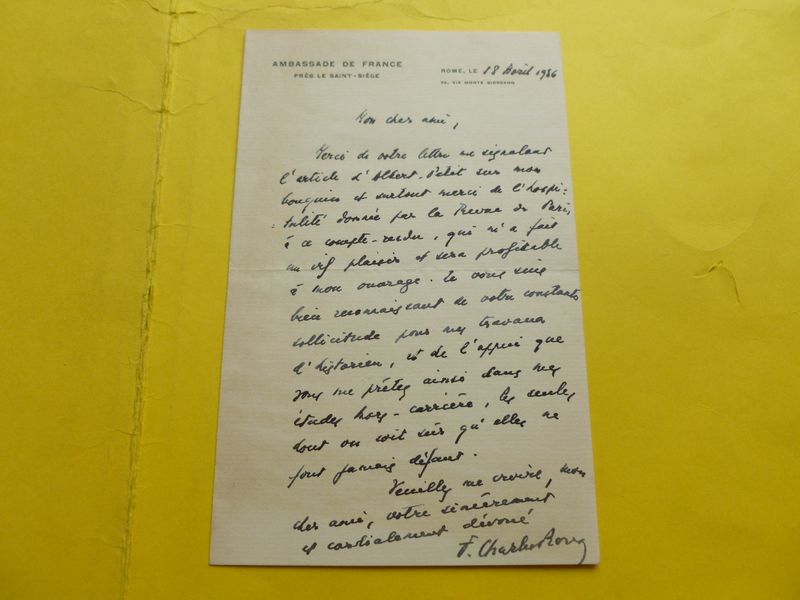 AMBASSADE DE FRANCE
PRÈS LE SAINT-SIÈGE
ROME, LE 18 Avril 1936
23, VIA MONTE GIORDANO
Mon cher ami,
Merci de votre lettre me signalant
l'article d'Albert-Petit sur mon
bouquin et surtout merci de l'hospi-
-talité donnée par la Revue de Paris,
à ce compte-rendu, qui m'a fait
un vif plaisir et sera profitable
à mon ouvrage. Je vous suis
bien reconnaissant de votre constante
sollicitude pour mes travaux
d'historien, et de l'appui que
vous me prêtez ainsi dans mes
études hors-carrière, les seules
dont on soit sûr qu'elles ne
font jamais défaut.
Veuillez me croire, mon
cher ami, votre sincèrement
et cordialement dévoué
F. Charles-Roux